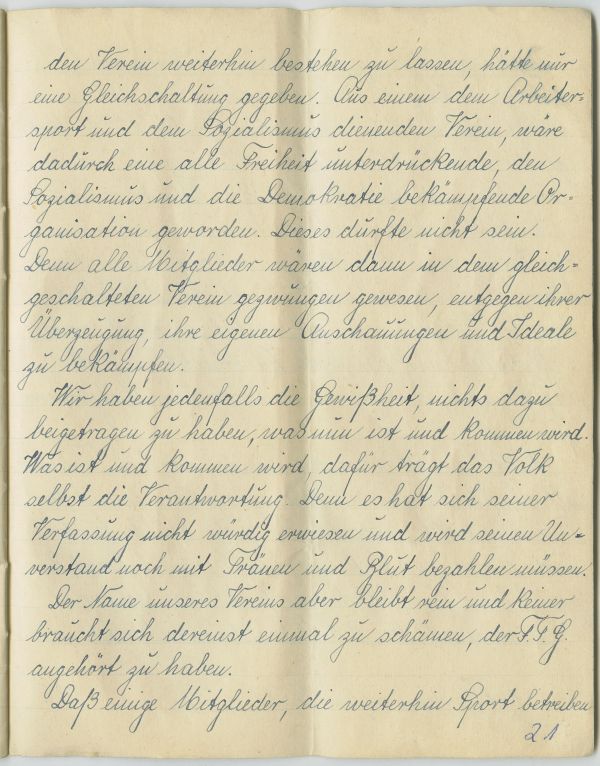 den Verein weiterhin bestehen zu lassen, hätte nur
eine Gleichschaltung gegeben. Aus einem dem Arbeiter=
sport und dem Sozialismus dienenden Verein, wäre
dadurch eine alle Freiheit unterdrückende, den
Sozialismus und die Demokratie bekämpfende Or=
ganisation geworden. Dieses durfte nicht sein.
Denn alle Mitglieder wären dann in dem gleich=
geschalteten Verein gezwungen gewesen, entgegen ihrer
Überzeugung, ihre eigenen Anschauungen und Ideale
zu bekämpfen.
Wir haben jedenfalls die Gewißheit, nichts dazu
beigetragen zu haben, was nun ist und kommen wird.
Was ist und kommen wird, dafür trägt das Volk
selbst die Verantwortung. Denn es hat sich seiner
Verfassung nicht würdig erwiesen und wird seinen Un=
verstand noch mit Tränen und Blut bezahlen müssen.
Der Name unseres Vereins aber bleibt rein und keiner
braucht sich dereinst einmal zu schämen, der F.F.G.
angehört zu haben.
Daß einige Mitglieder, die weiterhin Sport betreiben
21